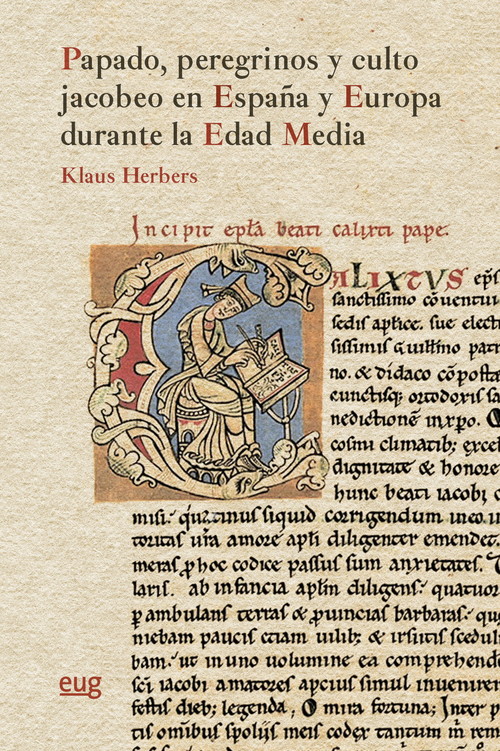 Papado, peregrinos y culto
jacobeo en España y Europa
durante la Edad Media
Klaus Herbers
Incipit epła beati calixti pape.
ALIXTVS ep̄s
sanctissimo cōuentui
sedis aplice. sue elect
sissimis guilłmo patr
no. & didaco cōposte
cunctisq; ortodoxis sa
nedictionē inxp̄o.
cosmi climatib; excel
dignitate & honore
hunc beati iacobi c
misi. siquid corrigendum in eo
toritas ura amore apłi diligenter emendet.
meras p hoc codice passus sum anxietates.
laris. ab infancia apłm diligens. quatuor
p ambulans terras & puincias barbaras.
niebam paucis etiam uilib; & irsutis scedul
bam. ut in uno uolumine ea comprehend
sci iacobi amatores apcius simul inuenirent
festis dieb; legenda, O mira fortuna; Inter p
tis omībus spolijs meis codex tantum in rem
eug